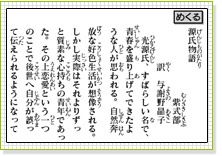 めくる
源氏物語
紫式部
訳　与謝野晶子
光源氏、すばらしい名で、
青春を盛り上げてできたよ
うな人が思われる。自然奔
放な好色生活が想像される。
しかし実際はそれよりずっ
と質素な心持ちの青年であっ
た。その上恋愛という一つ
のことで後世へ自分が誤っ
て伝えられるようになって